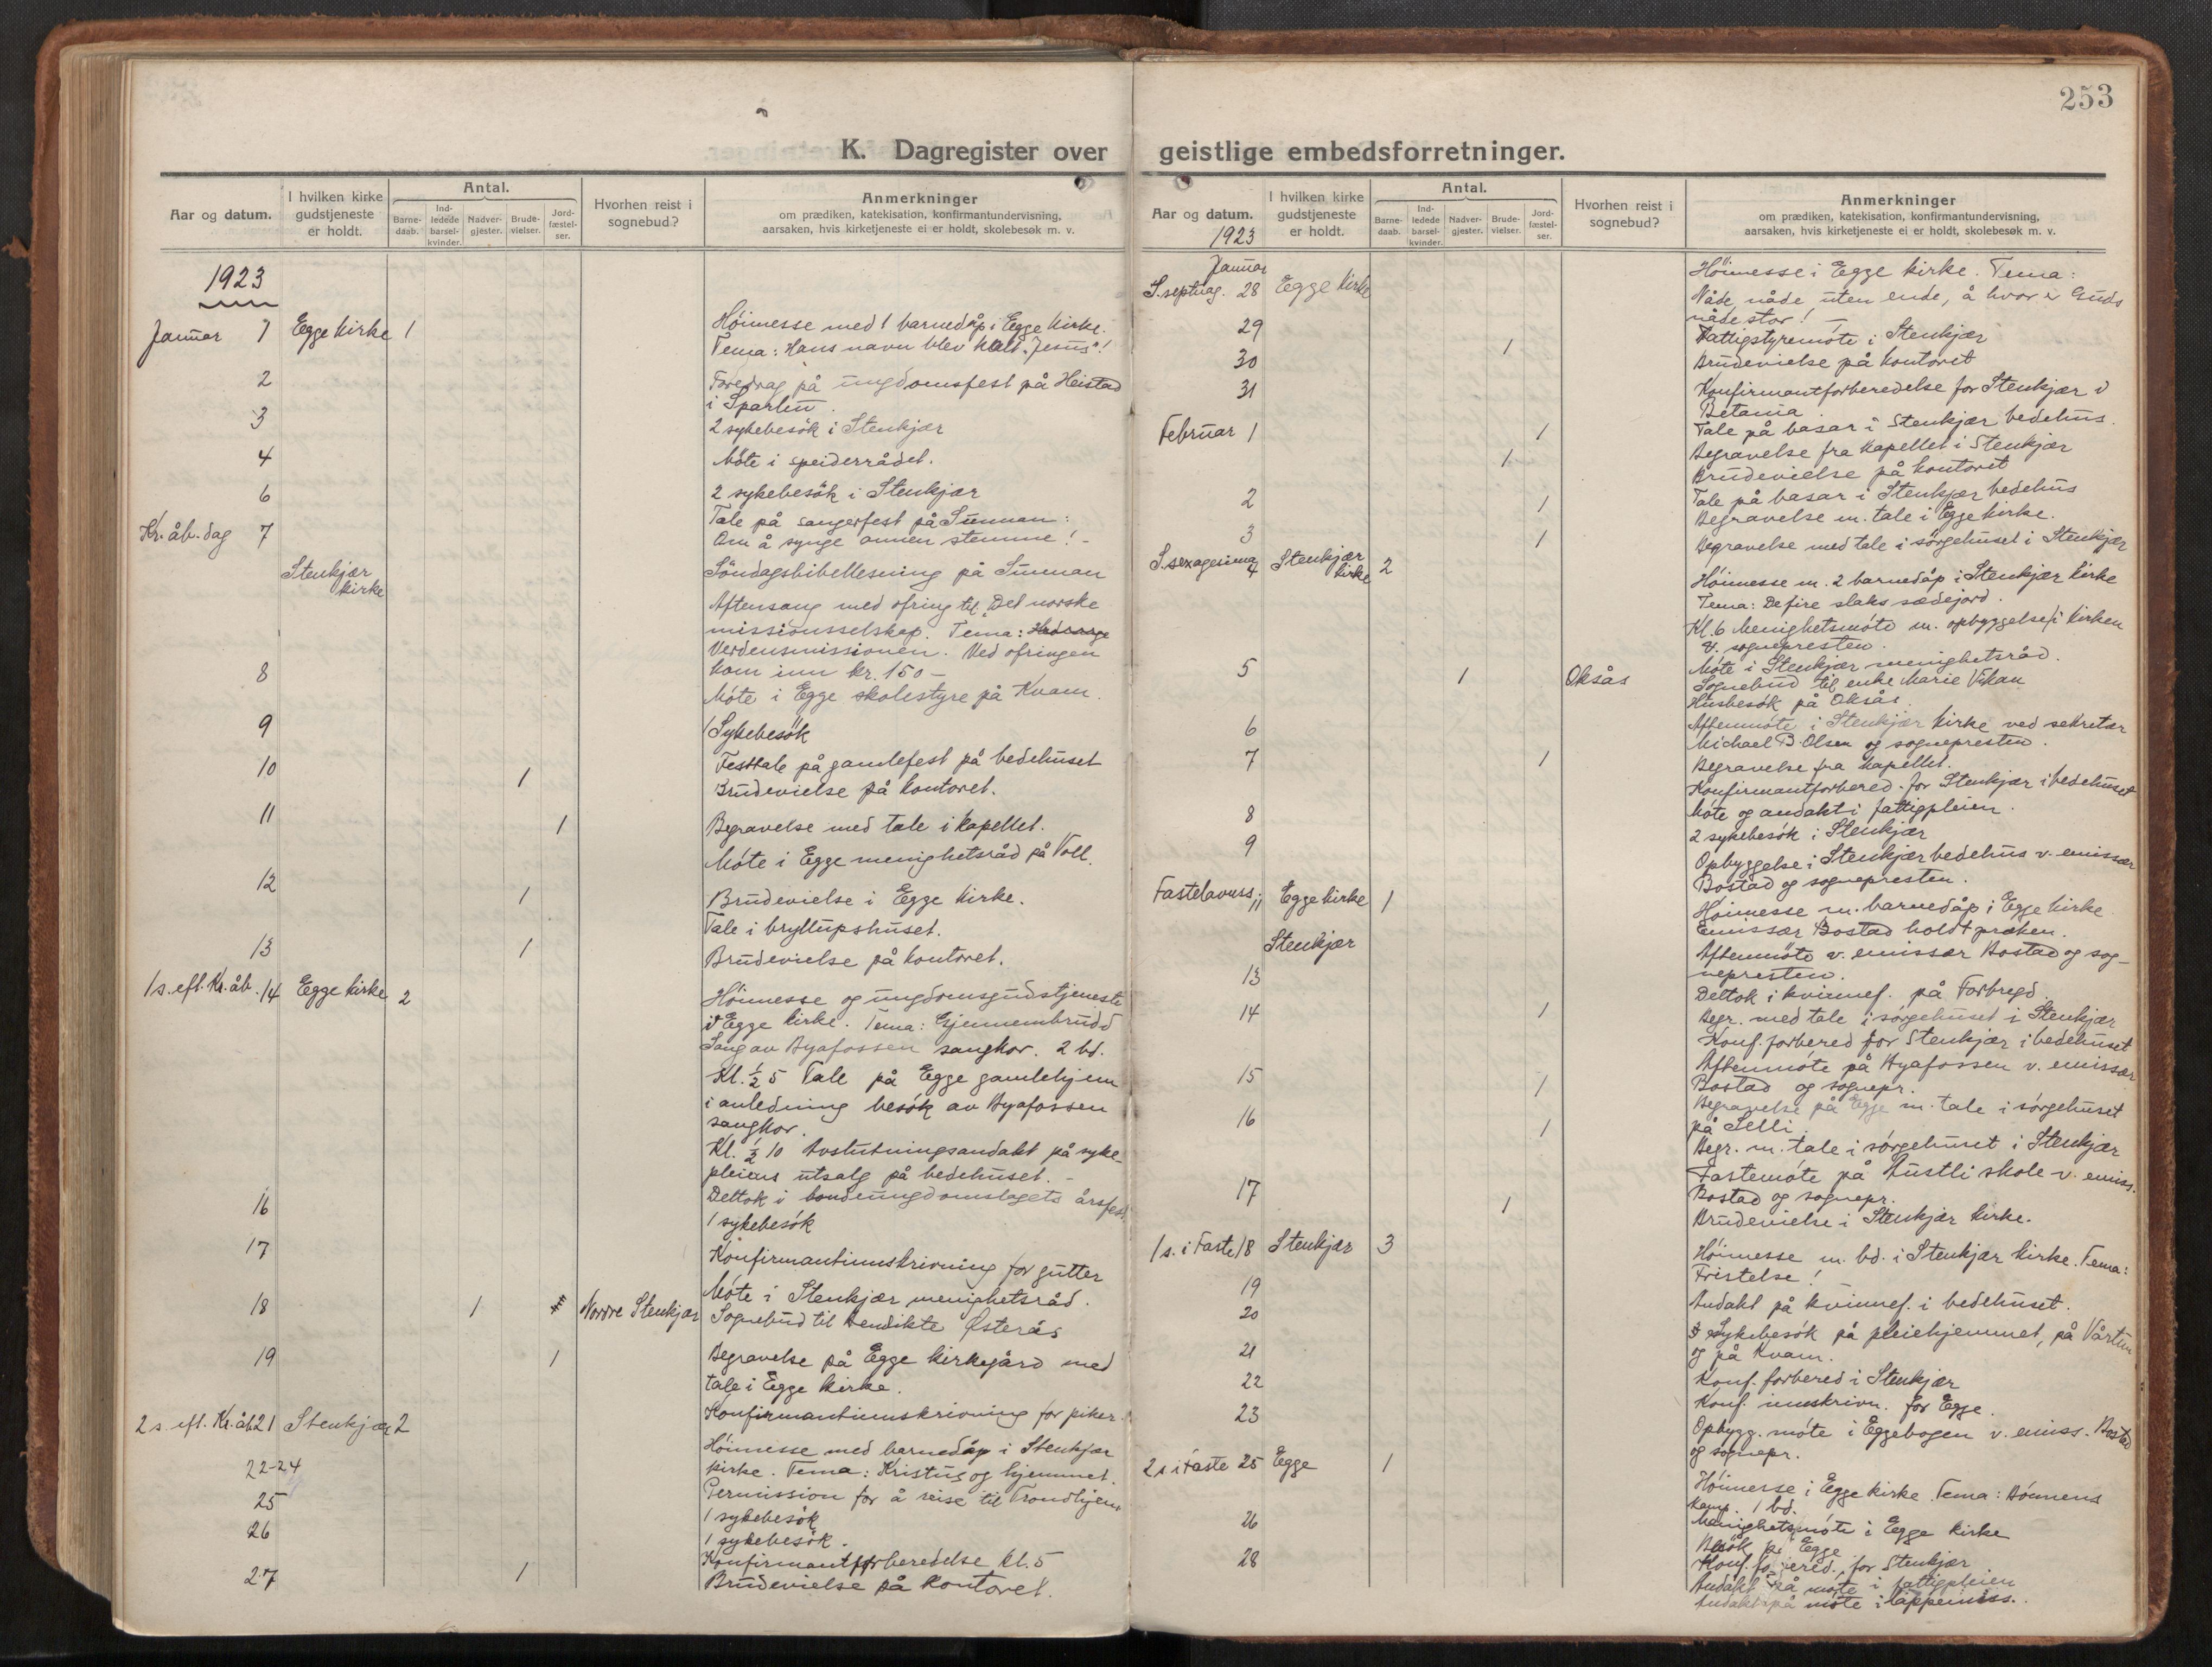 253
K. Dagregister over geistlige embedsforretninger.
Aar og datum.
I hvilken kirke gudstjeneste er holdt.
Antal.
Barne-daab.
Ind-ledede barsel-kvinder.
Nadver-gjester.
Brude-vielser.
Jord-fæstel-ser.
Hvorhen reist i sognebud?
Anmerkninger
om prædiken, katekisation, konfirmantundervisning,
aarsaken, hvis kirketjeneste ei er holdt, skolebesøk m. v.
1923
Januar 1 Egge kirke 1 Höimesse med 1 barnedåp i Egge kirke.
Tema: Hans navn blev kalt "Jesus"!
2 Foredrag på ungdomsfest på Heistad
i Sparbu.
3 2 sykebesök i Stenkjær
4 Möte i speiderrådet.
6 2 sykebesök i Stenkjær
Tale på sangerfest på Sunnan:
Kr. åb. dag 7 Om å synge annen stemme! -
Stenkjær kirke Söndagsbibellesning på Sunnan
Aftensang med ofring til Det norske
missionsselskap. Tema:
Verdensmissionen. Ved ofringen
kom inn kr. 150 -
8 Möte i Egge skolestyre på Kvam.
9 1 Sykebesök
10 Festtale på gamlefest på bedehuset
1 Brudevielse på kontoret.
11 1 Begravelse med tale i kapellet.
Möte i Egge menighetsråd på Voll.
12 1 Brudevielse i Egge kirke.
Tale i bryllupshuset.
13 1 Brudevielse på kontoret.
1 s. eft. Kr. åb. 14 Egge kirke 2 Höimesse og ungdomsgudstjeneste
i Egge kirke. Tema: Gjennembrudd
Sang av Byafossen sangkor. 2 bd.
Kl. ½ 5 Tale på Egge gamlehjem
i anledning besök av Byafossen
sangkor.
Kl. ½ 10 Avslutningsandakt på syke-
pleiens utsalg på bedehuset. -
16 Deltok i bondeungdomslagets årsfest
1 sykebesök
17 Konfirmantinnskrivning for gutter
Möte i Stenkjær menighetsråd.
18 1 Nordre Stenkjær Sognebud til Bendikte Østerås
19 1 Begravelse på Egge kirkegård med
tale i Egge kirke.
Konfirmantinnskrivning for piker.
2 s. eft. Kr. åb 21 Stenkjær 2 Höimesse med barnedåp i Stenkjær
kirke. Tema: Kristus og hjemmet.
22-24 Permission for å reise til Trondhjem
25 1 sykebesök
26 1 sykebesök.
Konfirmantforberedelse kl. 5
27 1 Brudevielse på kontoret.
Aar og datum.
1923
I hvilken kirke gudstjeneste er holdt.
Antal.
Barne-daab.
Ind-ledede barsel-kvinder.
Nadver-gjester.
Brude-vielser.
Jord-fæstel-ser.
Hvorhen reist i sognebud?
Anmerkninger
om prædiken, katekisation, konfirmantundervisning,
aarsaken, hvis kirketjeneste ei er holdt, skolebesøk m. v.
Januar
S. septuag. 28 Egge kirke Höimesse i Egge kirke. Tema:
Nåde, nåde uten ende, å hvor er Guds
nåde stor! -
29 Fattigstyremöte i Stenkjær
30 1 Brudevielse på kontoret
31 Konfirmantforberedelse for Stenkjær i
Betania.
Tale på basar i Stenkjær bedehus.
Februar 1 1 Begravelse fra kapellet i Stenkjær
1 Brudevielse på kontoret
Tale på basar i Stenkjær bedehus
2 1 Begravelse m. tale i Egge kirke.
3 1 Begravelse med tale i sörgehuset i Stenkjær
S. sexagesima 4 Stenkjær kirke 2 Höimesse m. 2 barnedåp i Stenkjær kirke
Tema: De fire slaks sædejord.
Kl. 6 Menighetsmöte m. opbyggelse i kirken
v. sognepresten.
Möte i Stenkjær menighetsråd.
5 1 Oksås Sognebud til enke Marie Vikan
Husbesök på Oksås
6 Aftenmöte i Stenkjær kirke ved sekretær
Michael B. Olsen og sognepresten.
7 1 Begravelse fra kapellet.
Konfirmantforbered. for Stenkjær i bedehuset
Möte og andakt i fattigpleien.
8 2 sykebesök i Stenkjær
9 Opbyggelse i Stenkjær bedehus v. emissær
Bostad og sognepresten.
Fastelavnss. 11 Egge kirke 1 Höimesse m. barnedåp i Egge kirke
Emissær Bostad holdt præken.
Stenkjær Aftenmöte v. emissær Bostad og sog-
nepresten.
13 Deltok i kvinnef. på Forbregd.
14 1 Begr. med tale i sörgehuset i Stenkjær
Konf. forbered for Stenkjær i bedehuset
Aftenmöte på Byafossen v. emissær
Bostad og sognepr.
15 1 Begravelse på Egge m. tale i sörgehuset
på Selli
16 1 Begr. m. tale i sörgehuset i Stenkjær
Fastemöte på Lustli skole v. emiss.
Bostad og sognepr.
17 1 Brudevielse i Stenkjær kirke.
1 s. i Faste 18 Stenkjær 3 Höimesse m. bd. i Stenkjær kirke. Tema:
Fristelse!
19 Andakt på kvinnef. i bedehuset.
20 Sykebesök på pleiehjemmet, på Vårtun
og på Kvam.
21 Konf. forbered i Stenkjær
22 Konf. innskrivn. for Egge.
23 Opbygg. möte i Eggebogen v. emiss. Bostad
og sognepr.
2 s i Faste 25 Egge 1 Höimesse i Egge kirke. Tema: Bönnens
kamp. 1 bd.
Menighetsmöte i Egge kirke
26 Besök på Egge
28 Konf. forbered. for Stenkjær
Andakt på möte i fattigpleien
Andakt på möte i lappemiss.